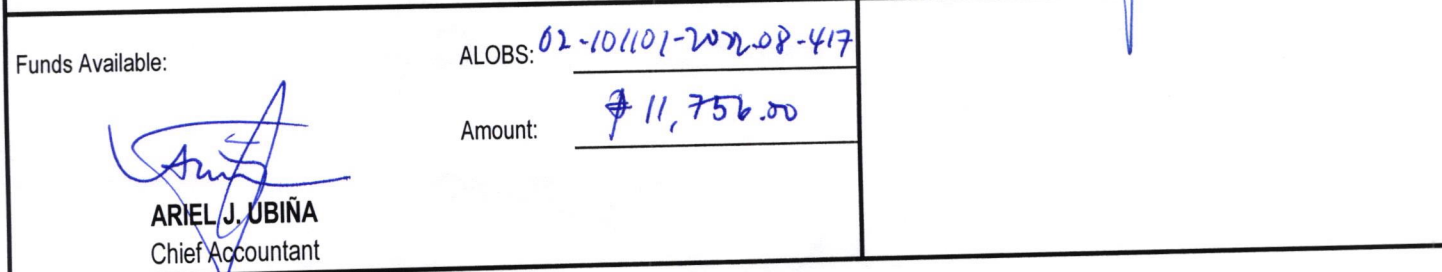 Funds Available:
ALOBS: 02-101101-2022-08-417
Amount: ₱ 11,756.00
ARIEL J. UBIÑA
Chief Accountant